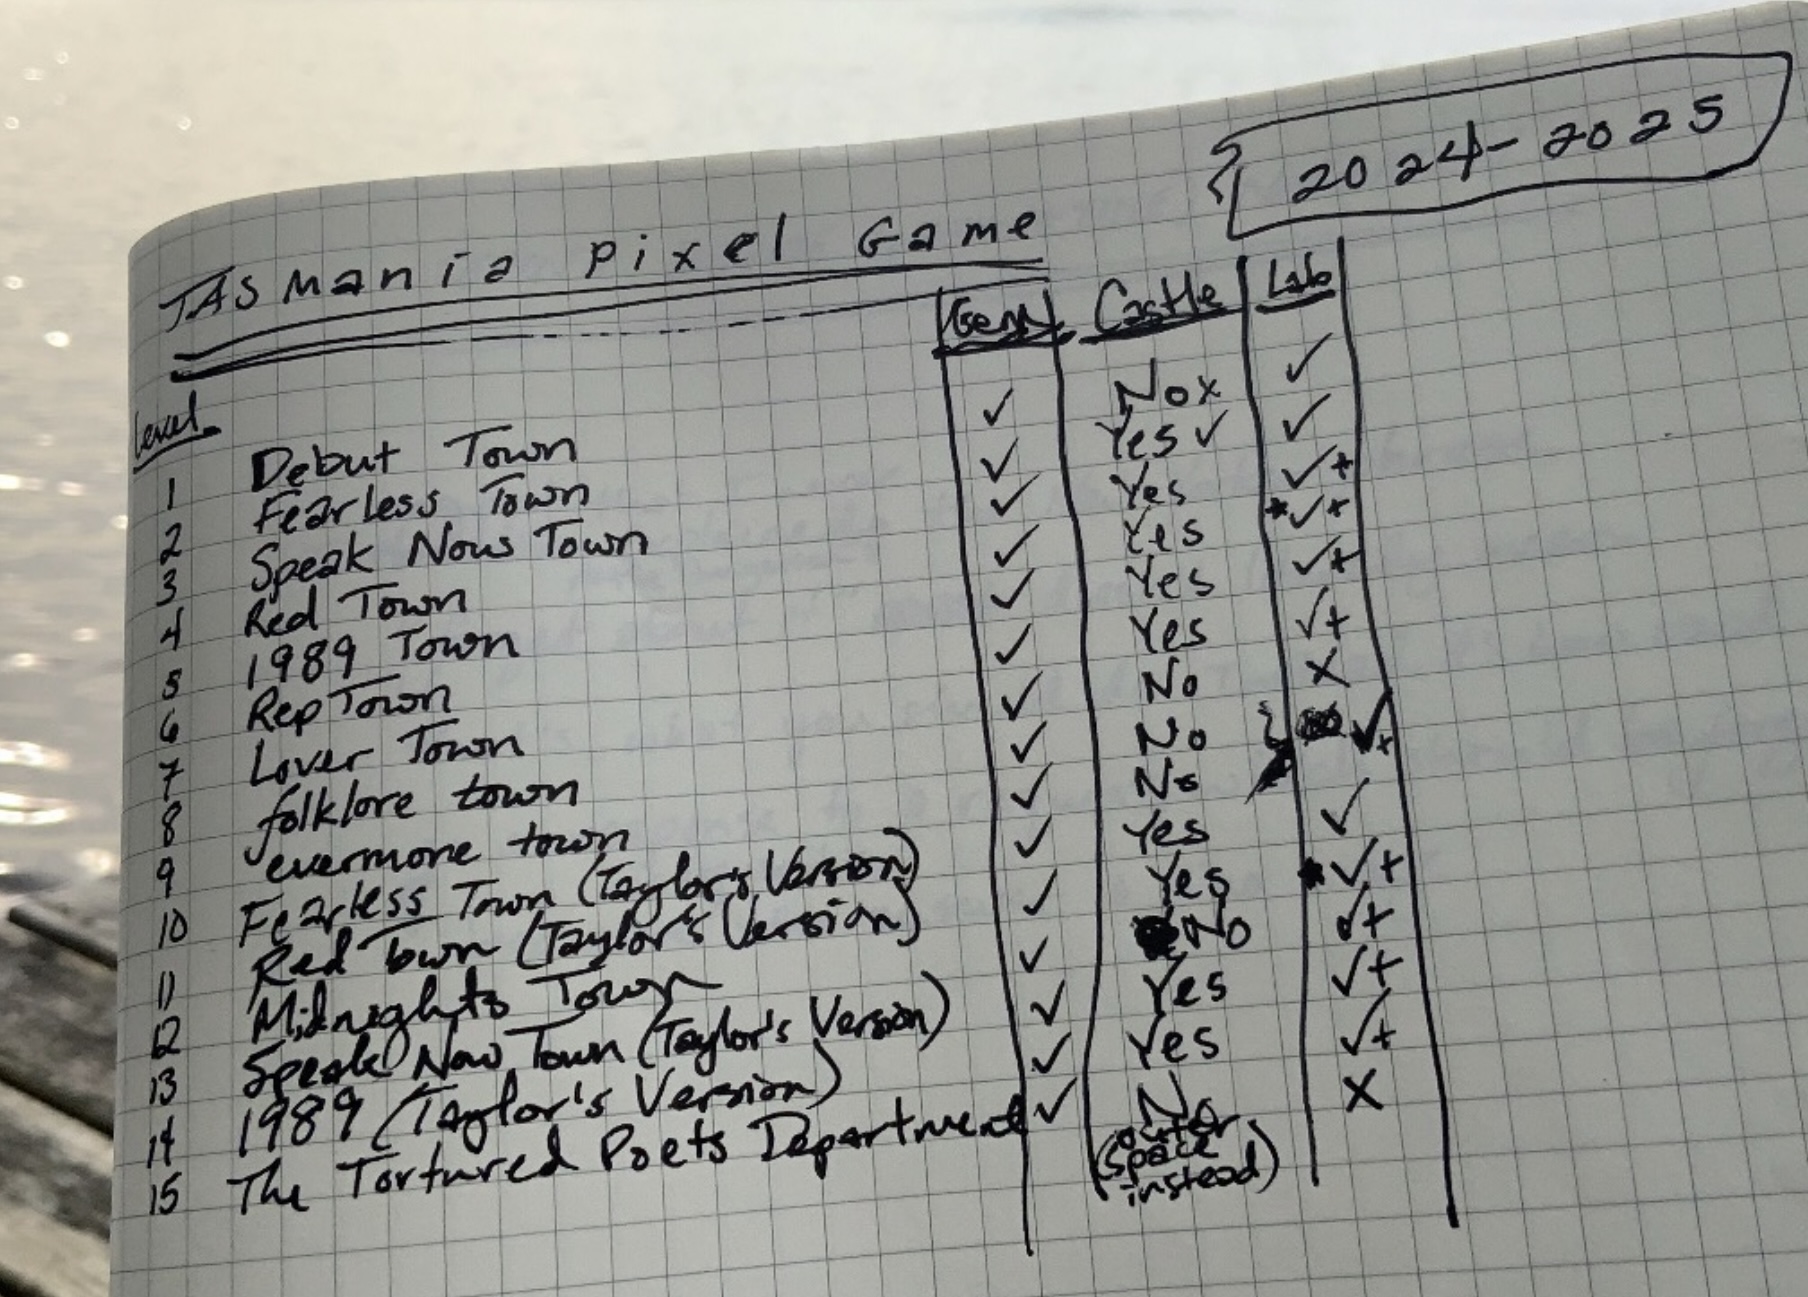 2024-2025
TASmania Pixel Game
Level Gem Castle Lab
1 Debut Town ✓ No x ✓
2 Fearless Town ✓ Yes ✓ ✓
3 Speak Now Town ✓ Yes ✓+
4 Red Town ✓ Yes *✓+
5 1989 Town ✓ Yes ✓+
6 Rep Town ✓ Yes ✓+
7 Lover Town ✓ No X
8 folklore town ✓ No ✓+
9 evermore town ✓ No
10 Fearless Town (Taylor's Version) ✓ Yes ✓
11 Red Town (Taylor's Version) ✓ Yes *✓+
12 Midnights Town ✓ No ✓+
13 Speak Now Town (Taylor's Version) ✓ Yes ✓+
14 1989 (Taylor's Version) ✓ Yes ✓+
15 The Tortured Poets Department ✓ No X
(outer
space
instead)